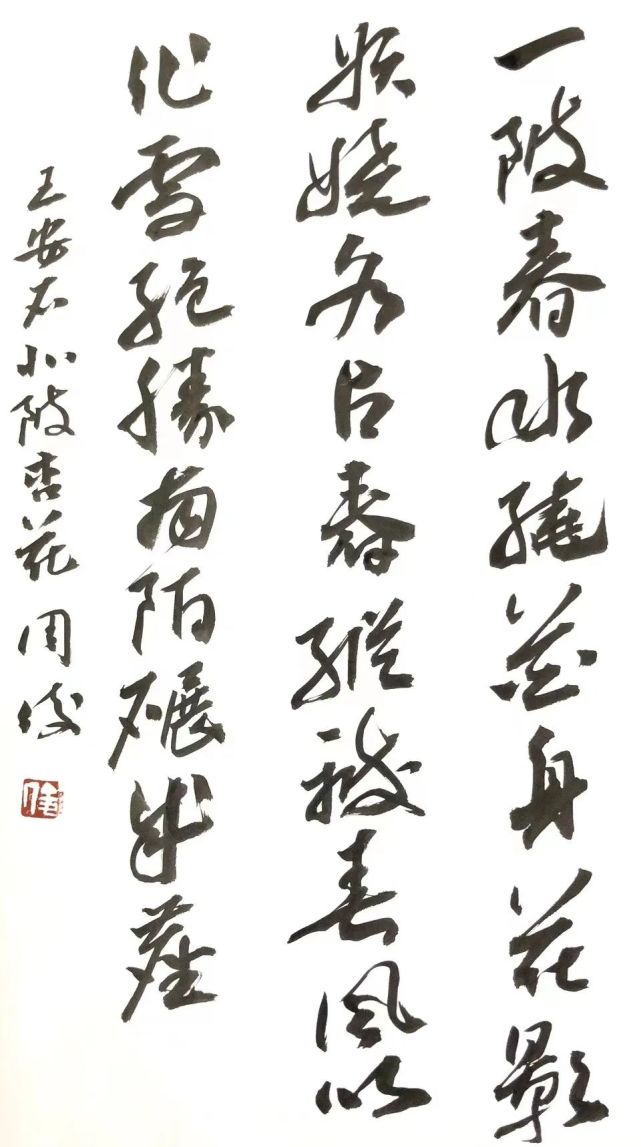 一陂春水繞花身花影
妖嬈各占春縱被春風吹
作雪絕勝南陌碾成塵
王安石北陂杏花周俊